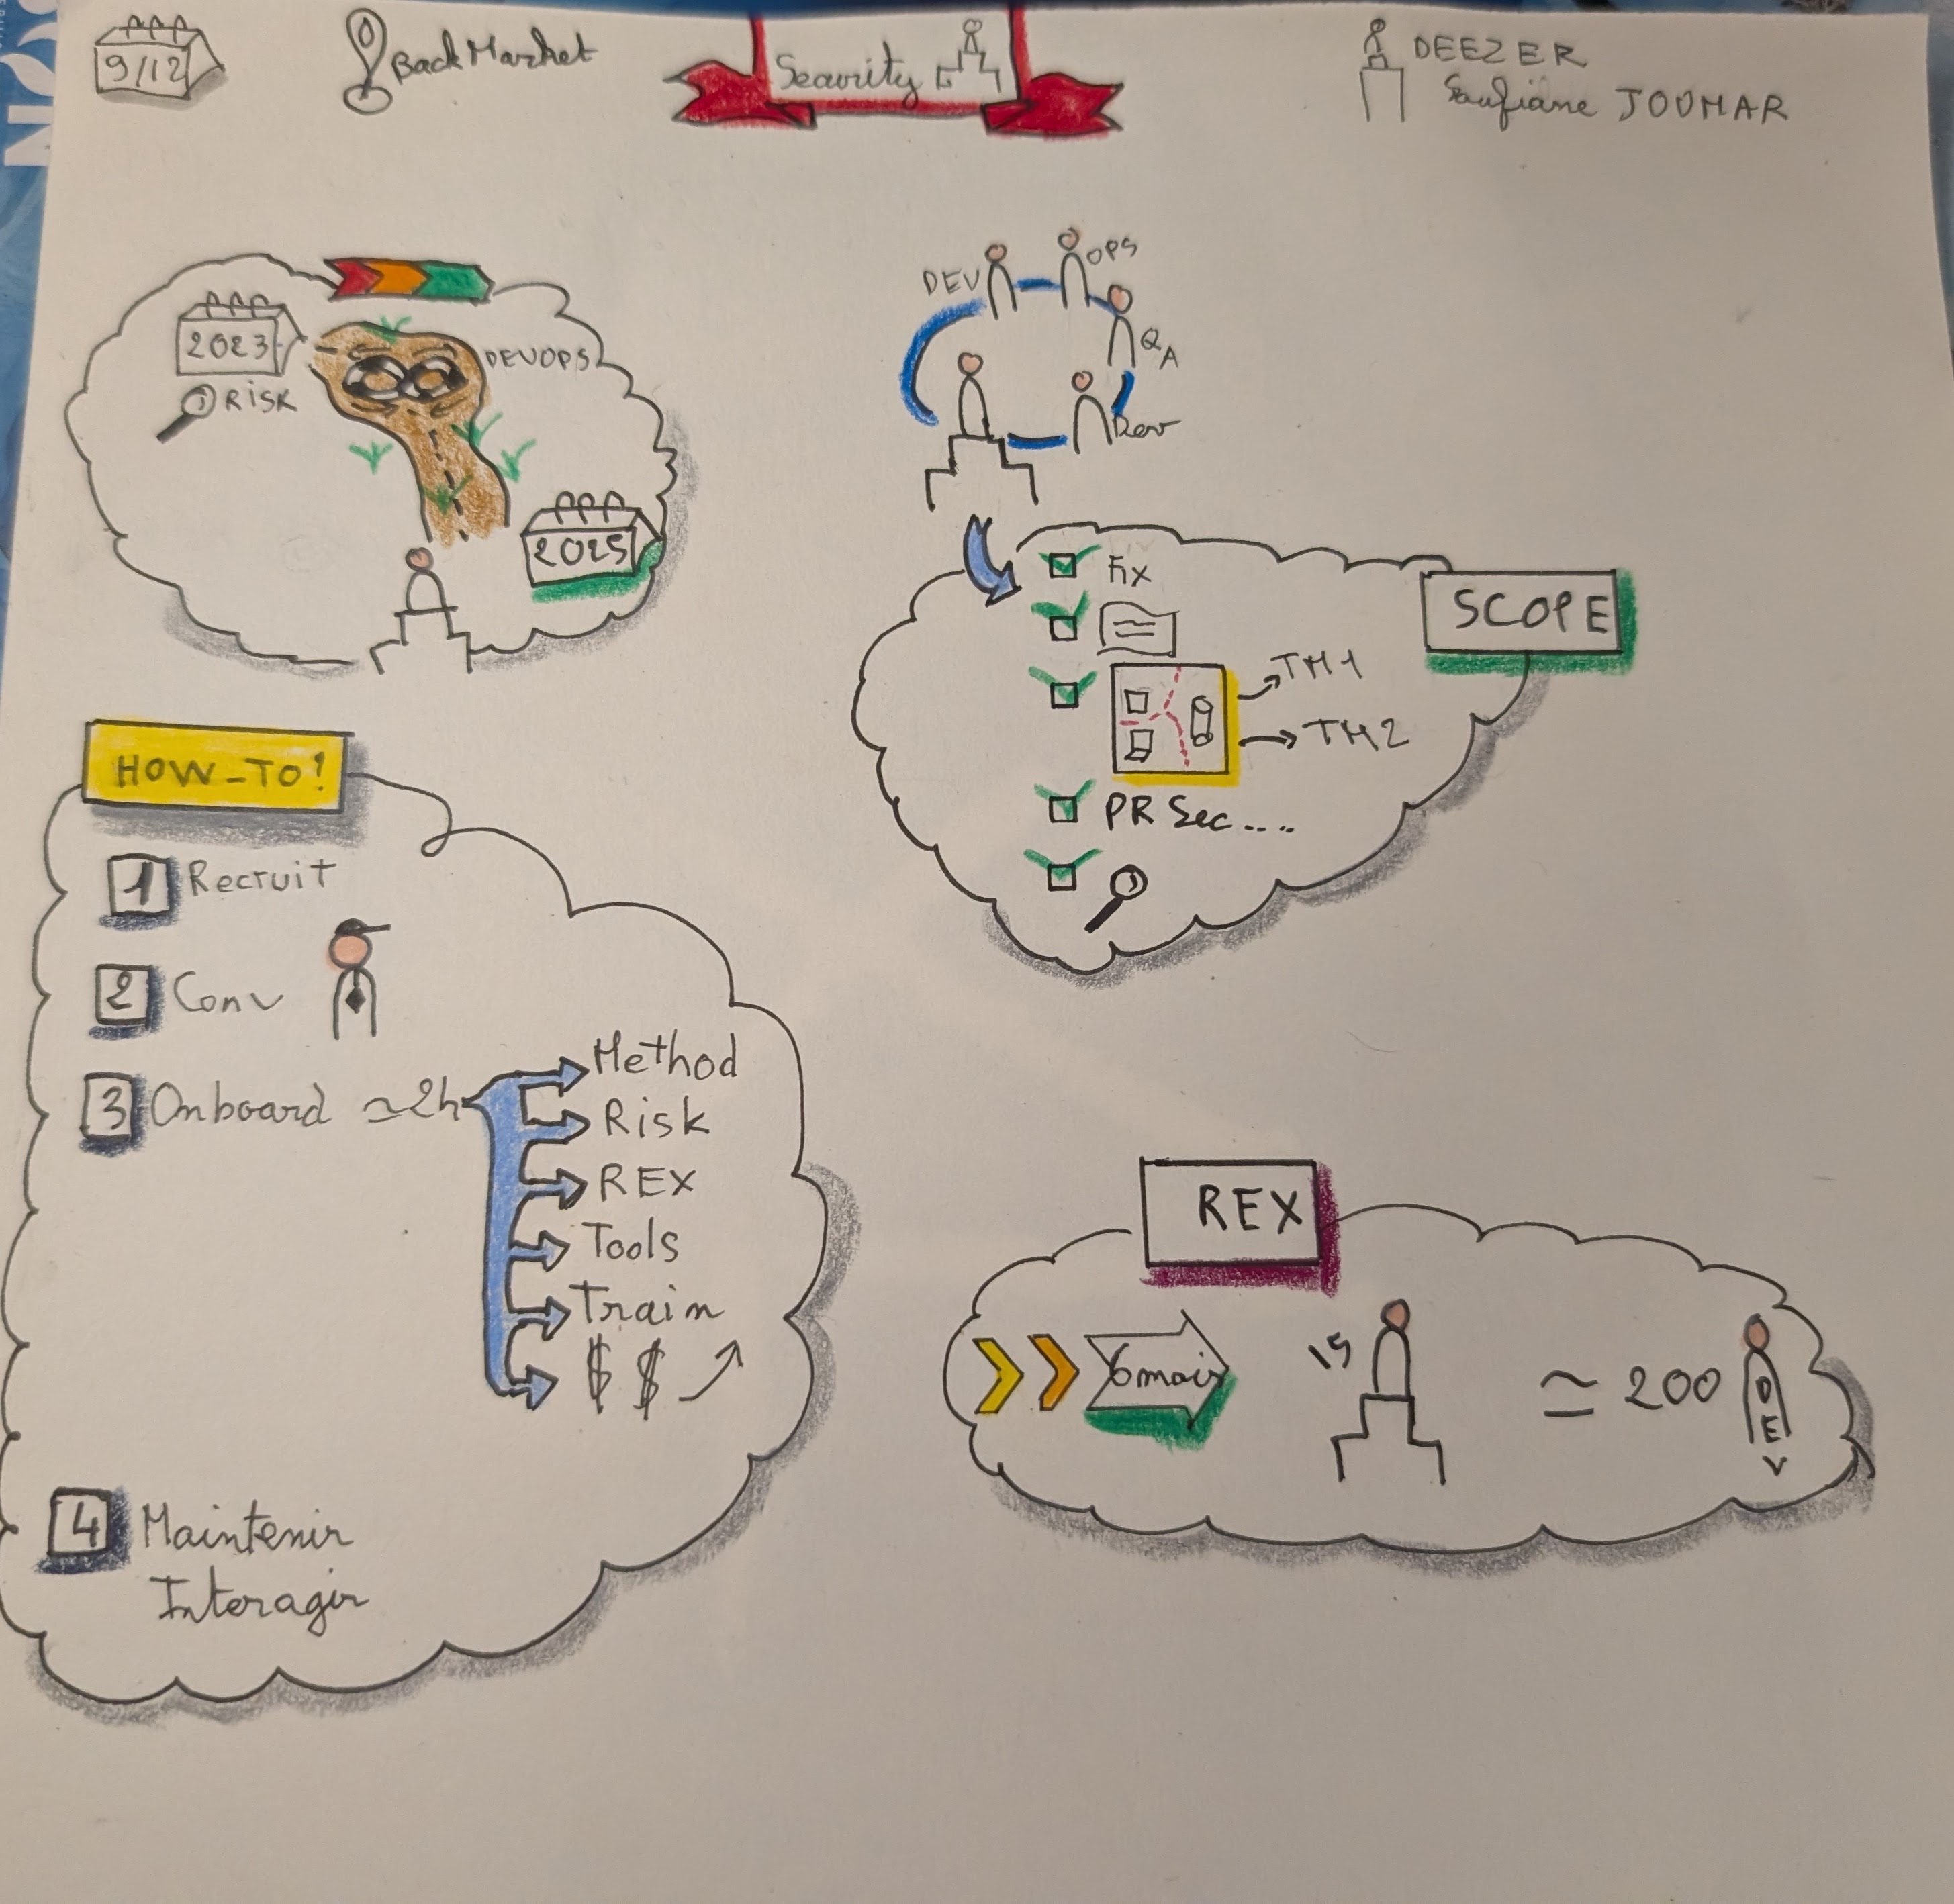 9/12
Back Market
Security
DEEZER
Soufiane JOOMAR
2023
RISK
DEVOPS
2025
DEV
OPS
QA
Dev
SCOPE
Fix
TM1
TM2
PR Sec....
HOW-TO!
1 Recruit
2 Conv
3 Onboard ≃2h
Method
Risk
REX
Tools
Train
$ $
4 Maintenir
Interagir
REX
6 mois
15
≃ 200
DEV